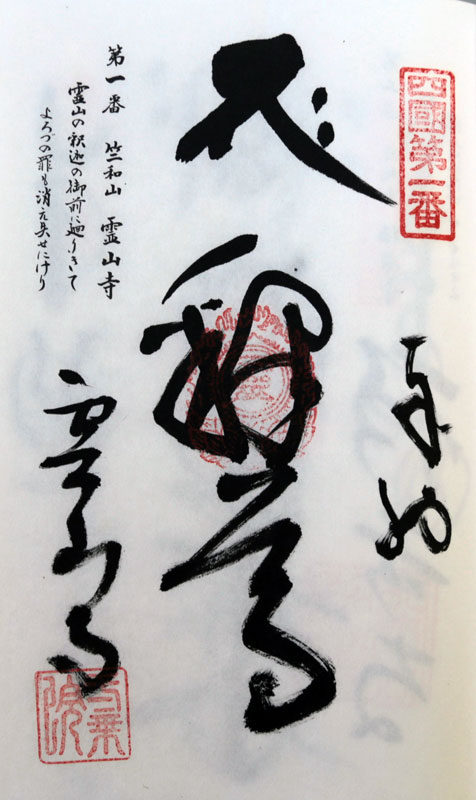 四國第一番
奉納
釈尊
霊山寺
第一番 竺和山 霊山寺
霊山の釈迦の御前に廻りきて
よろづの罪も消え失せにけり